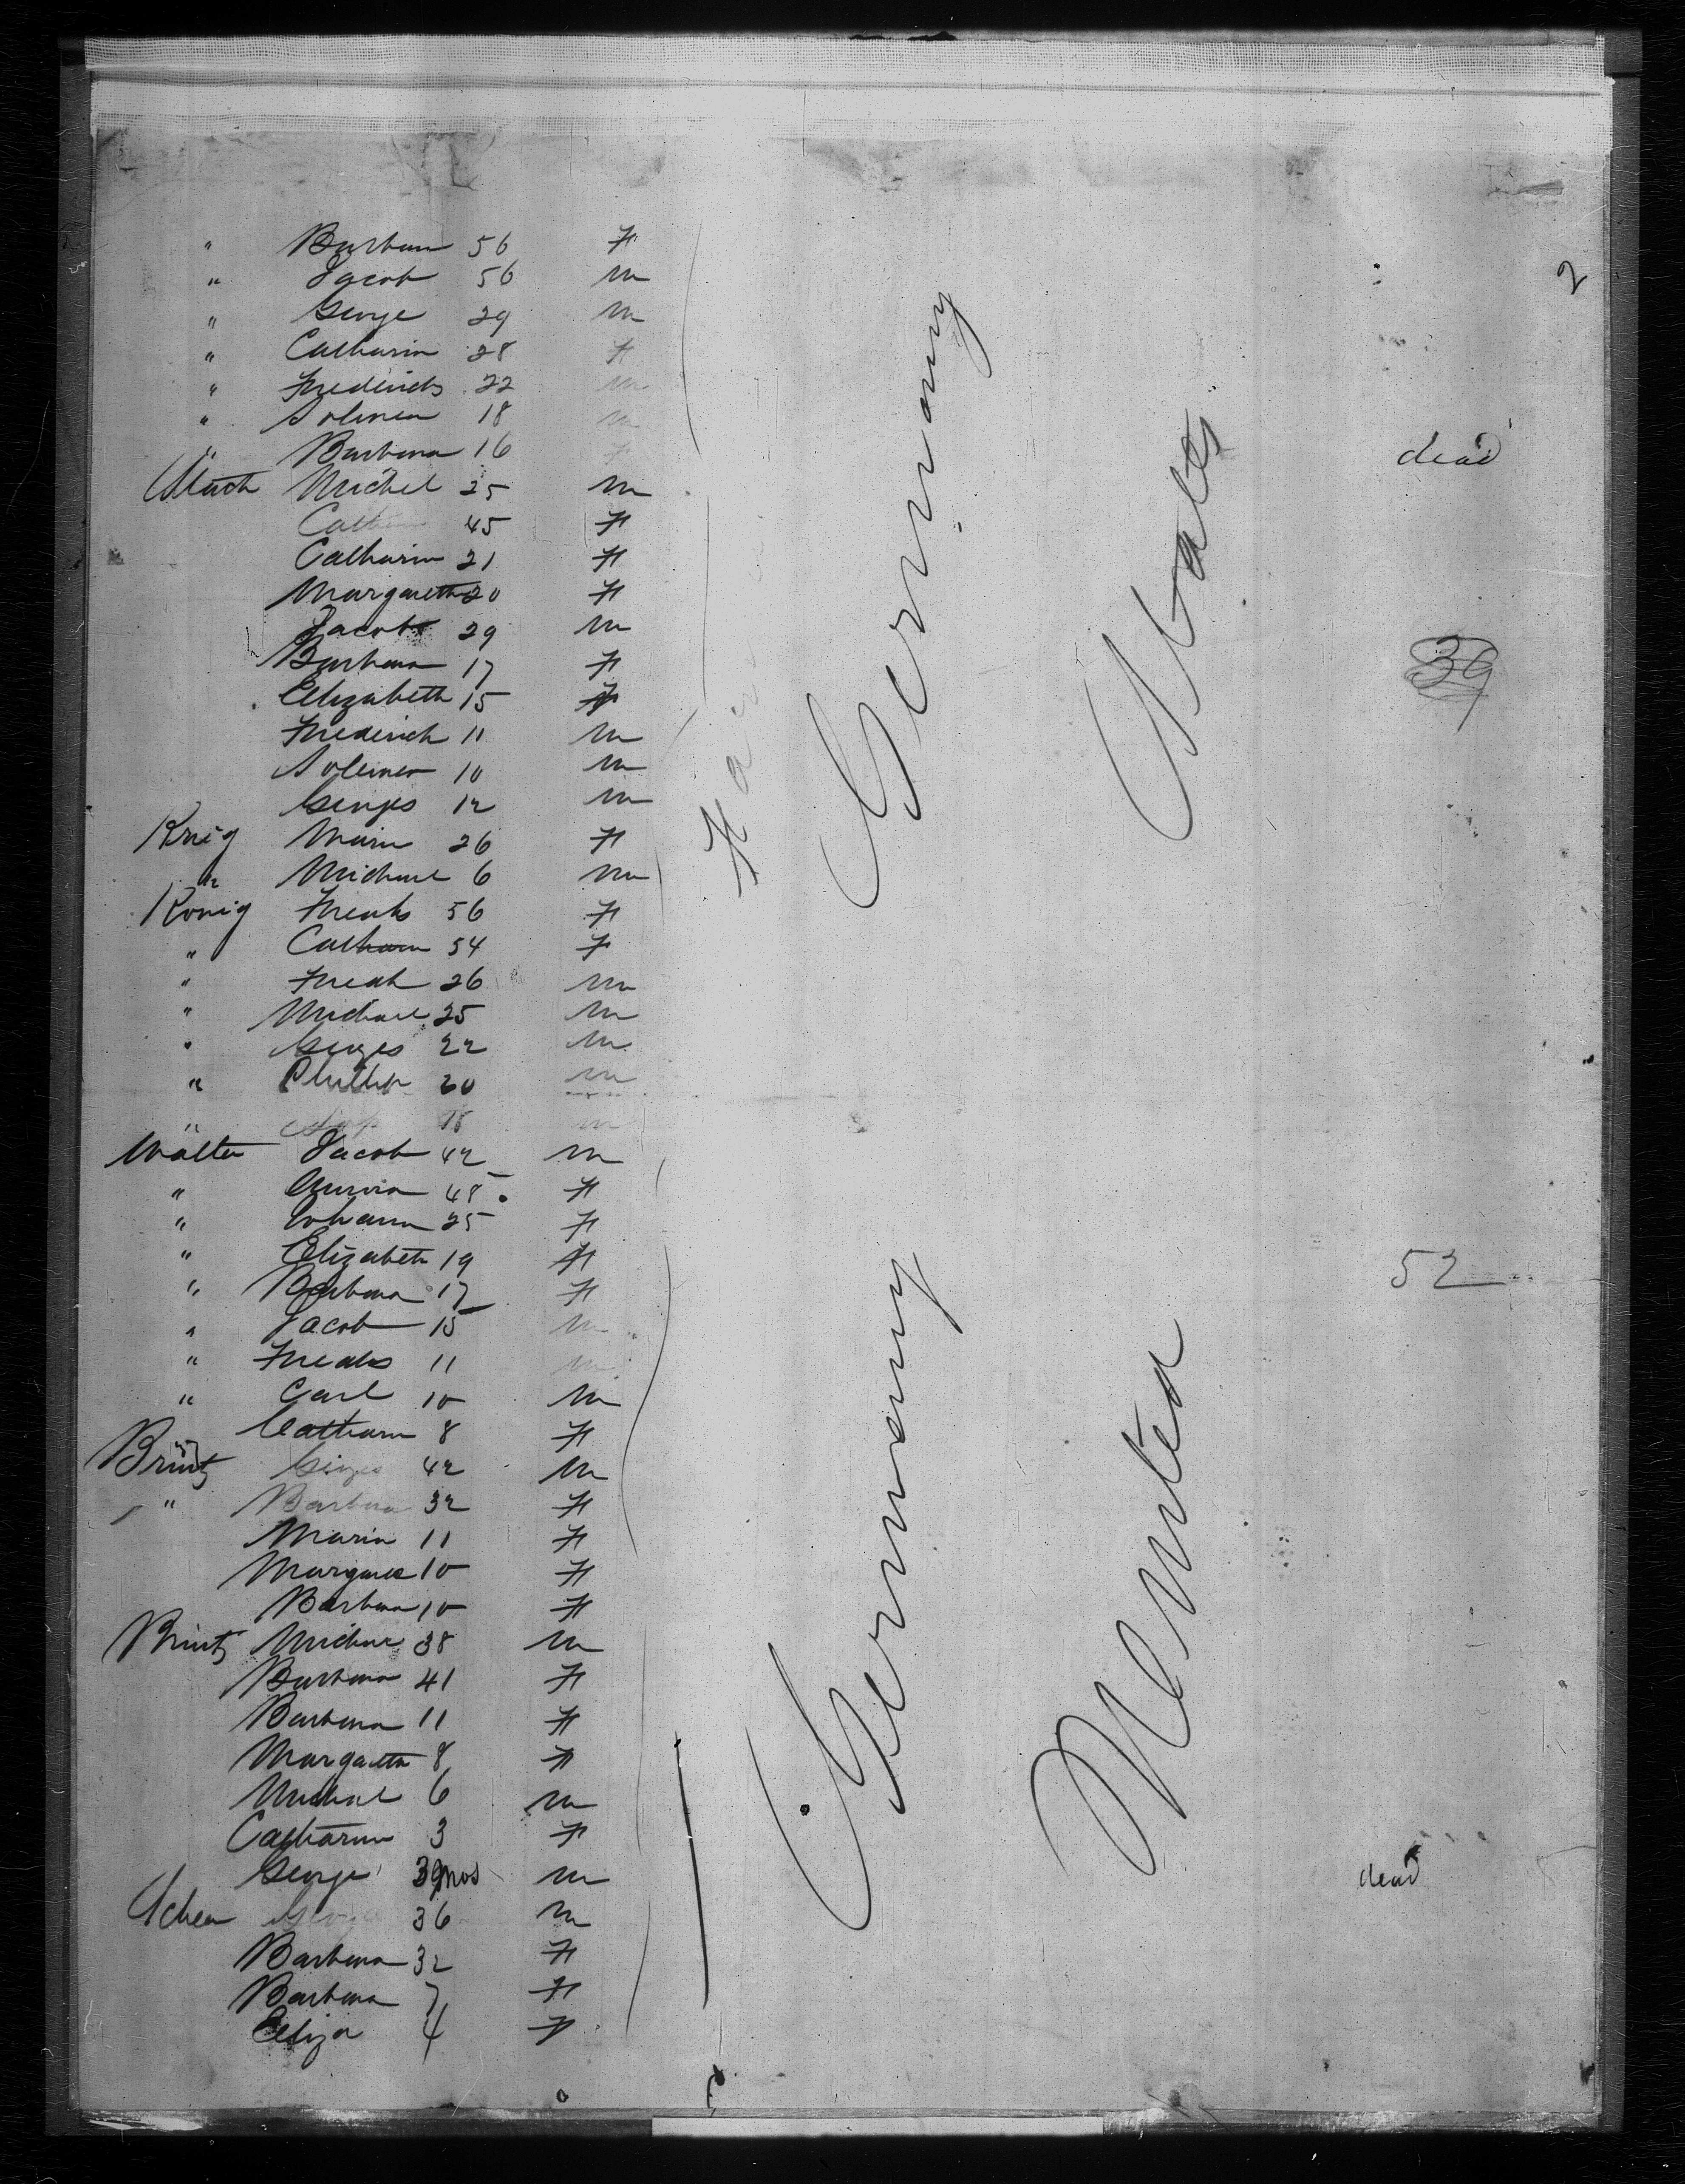 2
" Barbara 56 F
" Jacob 56 m
" George 29 m
" Catharin 28 F
" Frederick 22 m
" 18 m
" Barbara 16 F dead
Michel 25 m
45 F
Catharin 21 F
Margareth 20 F
Jacob 29 m
Barbara 17 F 39
Elizabeth 15 F
Frederich 11 m
10 m
Georges 12 m
Krieg Marie 26 F
" Michael 6 m
Konig 56 F
" Catharin 54 F
" 26 m
" Michael 25 m
" Georges 22 m
" Phillip 20 m
" 18 m
Walter Jacob 42 m
" 48 F
" 25 F
" Elizabeth 19 F 52
" Barbara 17 F
" Jacob 15 m
" 11 m
" Carl 10 m
Catharin 8 F
Brintz Georges 42 m
" Barbara 32 F
Maria 11 F
Margaret 10 F
Barbara 10 F
Brintz Michael 38 m
Barbara 41 F
Barbara 11 F
Margareth 8 F
Michael 6 m
Catharina 3 F
George mos m dead
36 m
Barbara 32 F
Barbara 7 F
Eliza 4 F
Germany
States
Germany